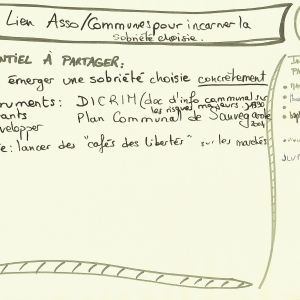 Lien Asso/Communes pour incarner la
sobriété choisie.
ENTIEL À PARTAGER:
émerger une sobriété choisie concrètement
ruments: DICRIM (doc d'info communal sur
les risques majeurs) 1990
ants Plan Communal de Sauvegarde
2004
velopper
e: lancer des "cafés des libertés" sur les marchés